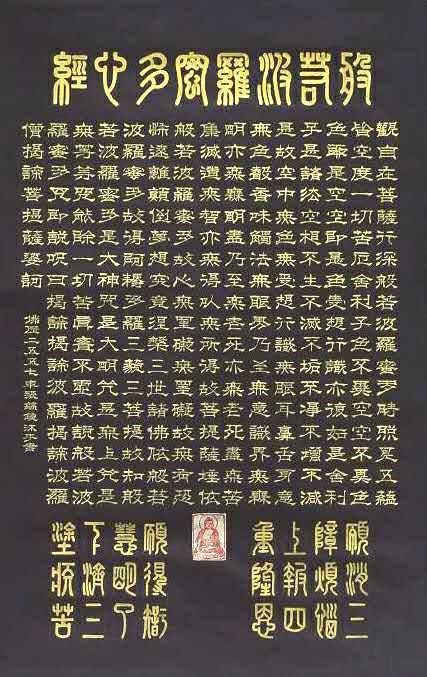 般若波羅蜜多心經
觀自在菩薩行深般若波羅蜜多時照見五蘊
皆空度一切苦厄舍利子色不異空空不異色
色即是空空即是色受想行識亦復如是舍利
子是諸法空相不生不滅不垢不淨不增不減
是故空中無色無受想行識無眼耳鼻舌身意
無色聲香味觸法無眼界乃至無意識界無無
明亦無無明盡乃至無老死亦無老死盡無苦
集滅道無智亦無得以無所得故菩提薩埵依
般若波羅蜜多故心無罣礙無罣礙故無有恐
怖遠離顛倒夢想究竟涅槃三世諸佛依般若
波羅蜜多故得阿耨多羅三藐三菩提故知般
若波羅蜜多是大神咒是大明咒是無上咒是
無等等咒能除一切苦真實不虛故說般若波
羅蜜多咒即說咒曰揭諦揭諦波羅揭諦波羅
僧揭諦菩提薩婆訶
佛曆二五五七年沐手書
願消三
障煩惱
上報四
重隆恩
願得智
慧明了
下濟三
塗苦